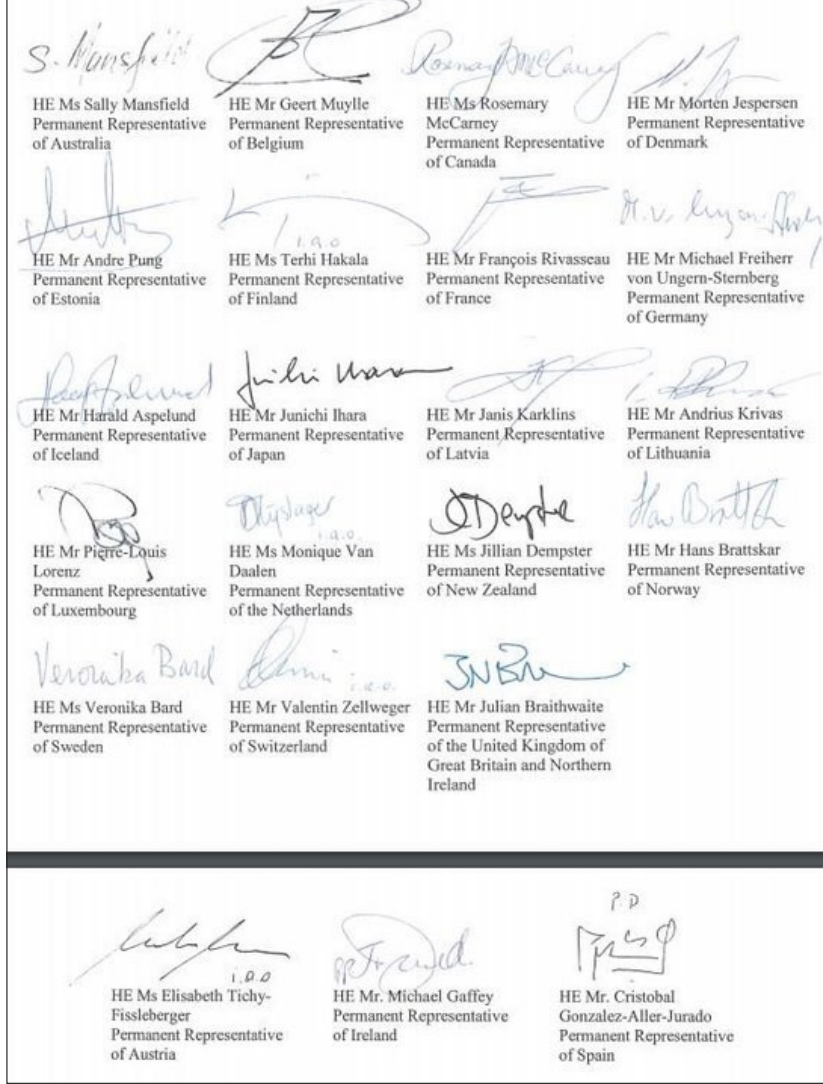 S. Mansfield
HE Ms Sally Mansfield
Permanent Representative
of Australia
HE Mr Geert Muylle
Permanent Representative
of Belgium
Rosemary McCarney
HE Ms Rosemary
McCarney
Permanent Representative
of Canada
HE Mr Morten Jespersen
Permanent Representative
of Denmark
HE Mr Andre Pung
Permanent Representative
of Estonia
i.a.o
HE Ms Terhi Hakala
Permanent Representative
of Finland
HE Mr François Rivasseau
Permanent Representative
of France
HE Mr Michael Freiherr
von Ungern-Sternberg
Permanent Representative
of Germany
HE Mr Harald Aspelund
Permanent Representative
of Iceland
HE Mr Junichi Ihara
Permanent Representative
of Japan
HE Mr Janis Karklins
Permanent Representative
of Latvia
HE Mr Andrius Krivas
Permanent Representative
of Lithuania
HE Mr Pierre-Louis
Lorenz
Permanent Representative
of Luxembourg
i.a.o.
HE Ms Monique Van
Daalen
Permanent Representative
of the Netherlands
HE Ms Jillian Dempster
Permanent Representative
of New Zealand
HE Mr Hans Brattskar
Permanent Representative
of Norway
Veronika Bard
HE Ms Veronika Bard
Permanent Representative
of Sweden
HE Mr Valentin Zellweger
Permanent Representative
of Switzerland
HE Mr Julian Braithwaite
Permanent Representative
of the United Kingdom of
Great Britain and Northern
Ireland
i.a.o
HE Ms Elisabeth Tichy-
Fissleberger
Permanent Representative
of Austria
HE Mr. Michael Gaffey
Permanent Representative
of Ireland
P.D
HE Mr. Cristobal
Gonzalez-Aller-Jurado
Permanent Representative
of Spain